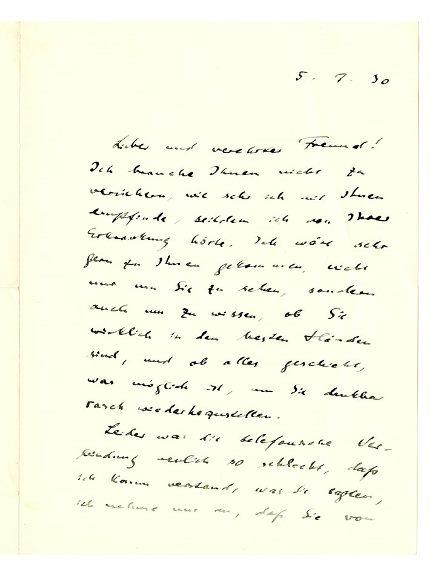 5. 7. 30
Lieber und verehrter Freund!
Ich brauche Ihnen nicht zu
versichern, wie sehr ich mit Ihnen
empfinde, seitdem ich von Ihrer
Erkrankung hörte. Ich wäre sehr
gern zu Ihnen gekommen, nicht
nur um Sie zu sehen, sondern
auch um zu wissen, ob Sie
wirklich in den besten Händen
sind, und ob alles geschieht,
was möglich ist, um Sie denkbar
rasch wiederherzustellen.
Leider war die telefonische Ver-
bindung neulich so schlecht, daß
ich kaum verstand, was Sie sagten,
ich nehme nur an, daß Sie von